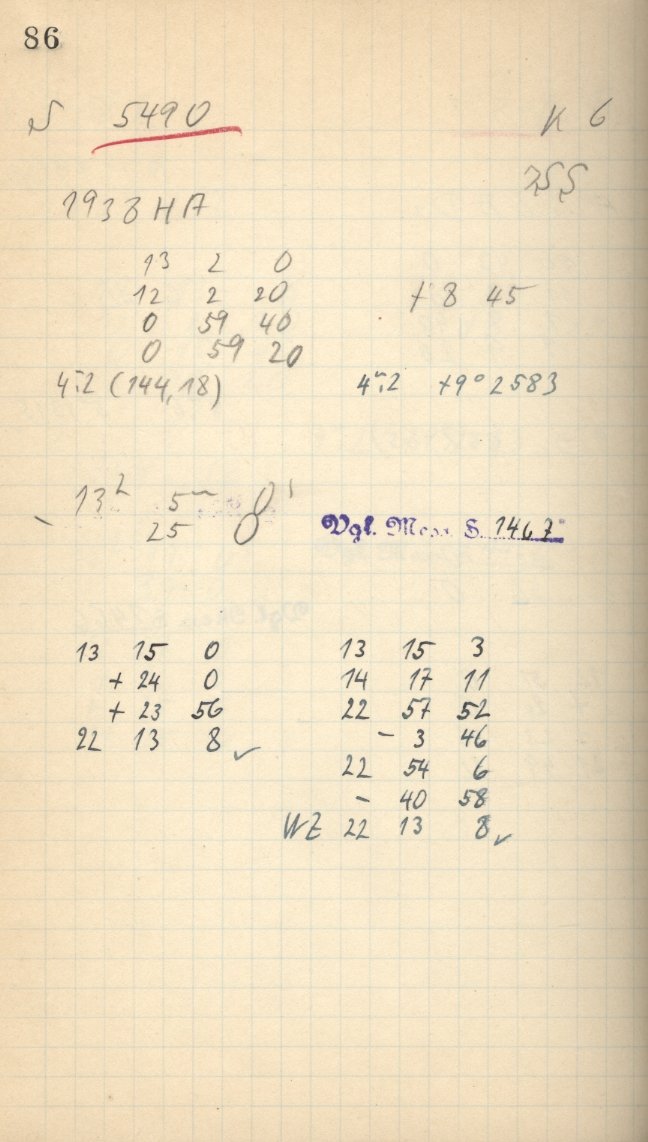 86
N 5490 K 6
1938 HA
13 2 0
12 2 20 + 8 45
0 59 40
0 59 20
4m,2 (144,18) 4m,2 +9° 2583
13h 5m 8'
- 25 8
Vgl. Mess S. 1467
13 15 0 13 15 3
+ 24 0 14 17 11
+ 23 56 22 57 52
22 13 8 ✓ - 3 46
22 54 6
- 40 58
WZ 22 13 8 ✓